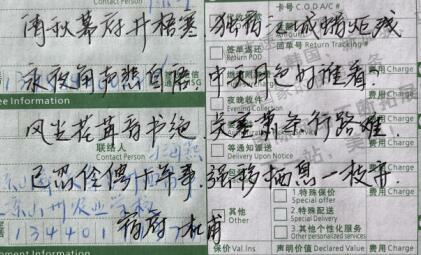 Contact Person
卡号 C.O.D.A/C #
清秋幕府井梧寒 独宿江城蜡炬残
回单号 Return Tracking #
签单返还
Return POD
费用 Charge
永夜角声悲自语 中天月色好谁看
费用 Charge
ee Information
Evening Collection
费用 Charge
风尘荏苒音书绝 关塞萧条行路难
联络人
Contact Person
等通知派送
Delivery Upon Notice
费用 Charge
已忍伶俜十年事 强移栖息一枝安
其他
Other
1.特殊保价
Special offer
2.特殊配送
Special Delivery
3.其他个性化服务
Other personalized services
费用 Charge
134401
宿府 杜甫
保价 Val.Ins 声明价值 Declared Value 费用 Charge
ment Information